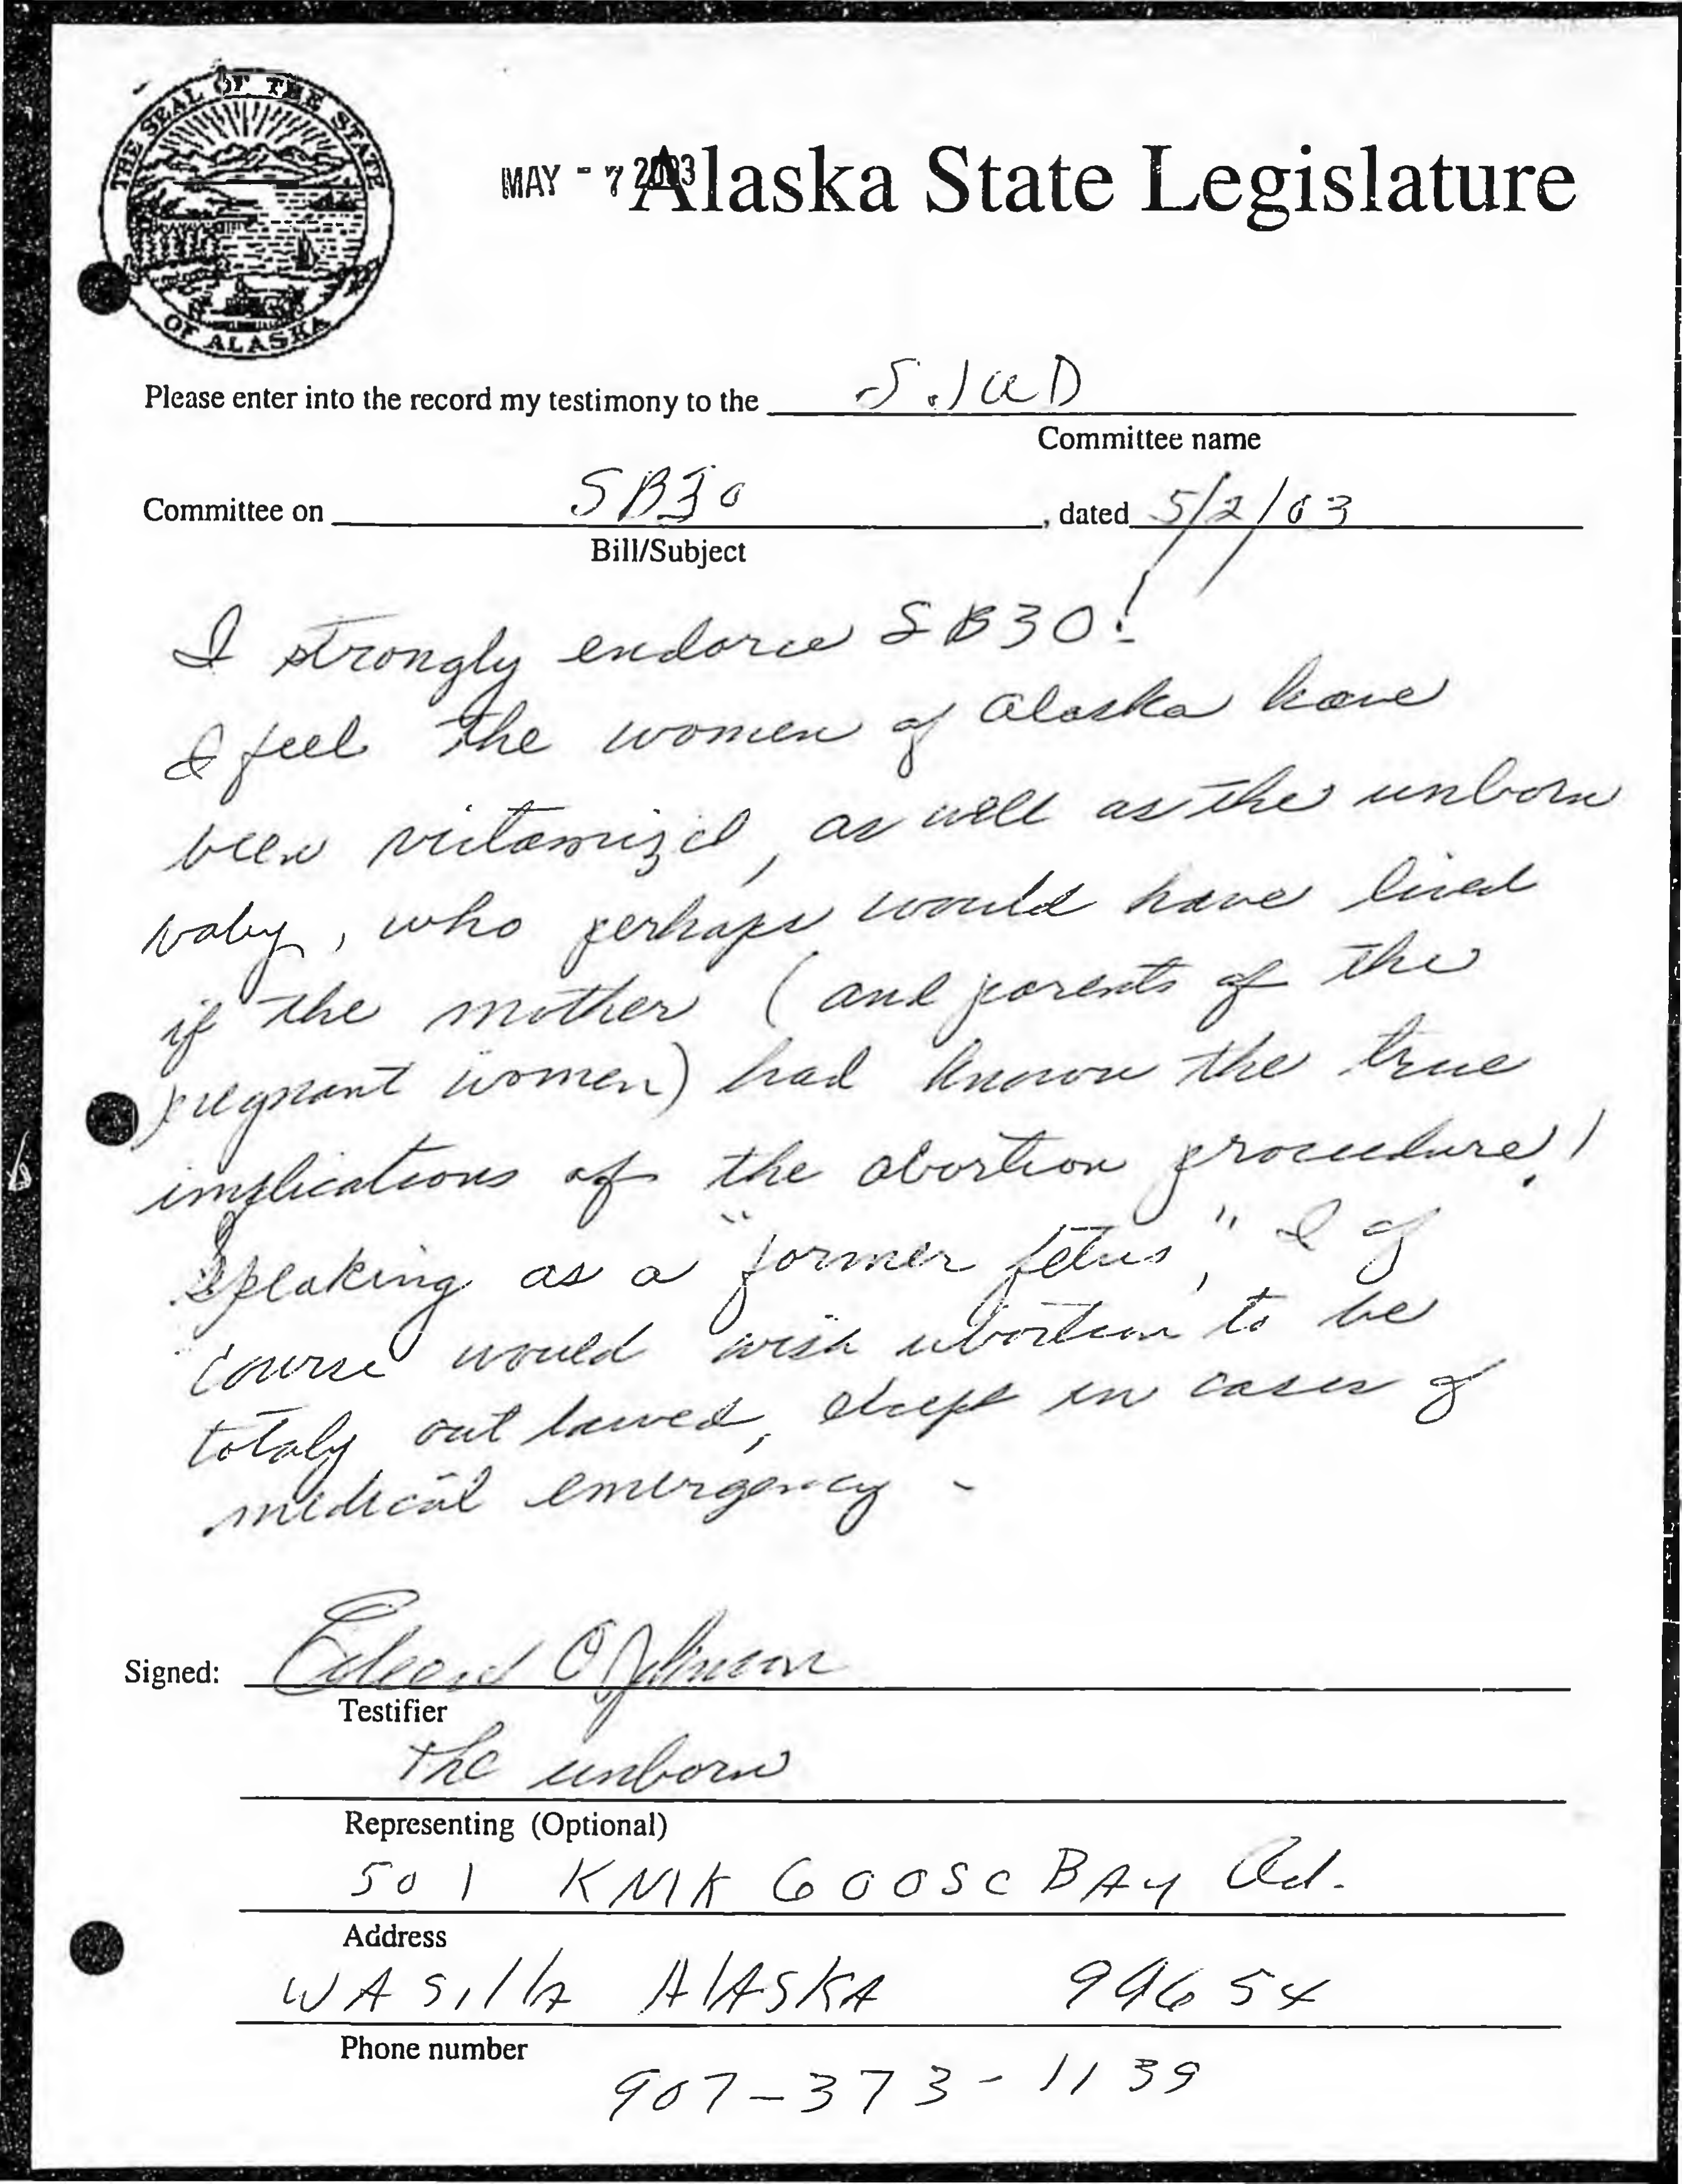 THE SEAL OF THE STATE
OF ALASKA
MAY - 7 2003
Alaska State Legislature
Please enter into the record my testimony to the S.JUD
Committee name
Committee on SB30, dated 5/2/03
Bill/Subject
I strongly endorse SB30!
I feel the women of Alaska have
been victamized, as well as the unborn
baby, who perhaps would have lived
if the mother (and parents of the
pregnant women) had known the true
implications of the abortion procedure!
Speaking as a "former fetus," I of
course would wish abortion to be
totaly out lawed, except in cases of
medical emergency -
Signed:
Testifier
the unborn
Representing (Optional)
501 KNIK GOOSE BAY Rd.
Address
WASilla AlASKA 99654
Phone number
907-373-1139